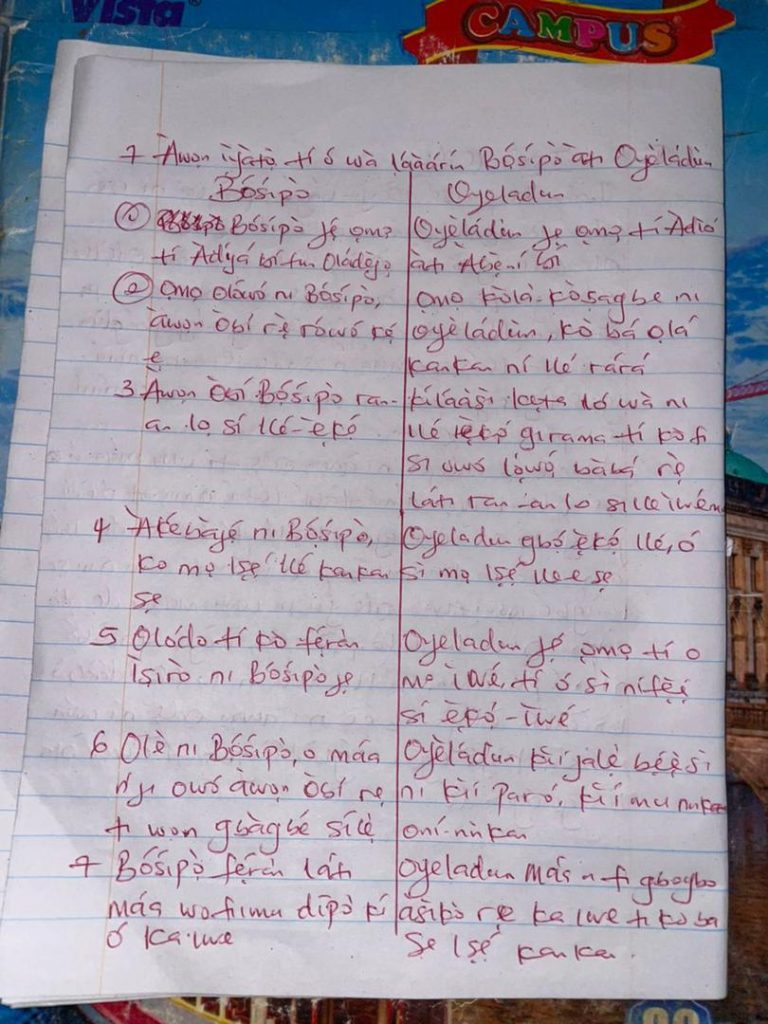 Vista
CAMPUS
7 Àwọn ìyàtọ̀ tí ó wà láàárín Bósípò àti Oyèládùn
Bósípò
Oyeladun
① Bósípò jẹ́ ọmọ
tí Àdìyá bí fún Oládẹ̀jọ
② Ọmọ Olówó ni Bósípò,
àwọn Òbí rẹ̀ rówó kẹ́
ẹ
3. Àwọn Òbí Bósípò ran-
an lọ sí Ilé-ẹ̀kọ́
4 Àkẹ́bàjẹ́ ni Bósípò,
ko mọ Isẹ́ Ilé kankan
sẹ
5 Olódo tí kò fẹ́ràn
Ìsirò ni Bósípò jẹ
6 Olè ni Bósípò, o máa
ń jí owó àwọn Òbí rẹ
tí won gbàgbé sílẹ̀
7 Bósípò fẹ́ràn láti
máa wo fimu dípò kí
ó Ka-iwe
Oyèládùn jẹ ọmọ tí Àdìó
àti Àbẹ̀ní bí
Ọmọ kòlà-kòsagbe ni
Oyèládùn, kò bá ọlá
kankan ní Ilé rárá
kíláàsì kẹta ló wà ni
Ilé ẹ̀kọ́ girama tí kò fi
sí owó lọ́wọ́ bàbá rẹ̀
láti ran-an lọ si ilé ìwé mọ́
Oyeladun gbọ́ ẹ̀kọ́ Ilé, ó
sì mọ Isẹ́ Ilee sẹ
Oyeladun jẹ́ ọmọ tí o
mọ ìwé, tí ó sì nífẹ̀ẹ́
sí ẹ̀kọ́-ìwé
Oyèládùn kìí jalè bẹ́ẹ̀ sì
ni kìí parọ́, kìí mu nnkan
oní-nǹkan
Oyeladun máa n fi gbogbo
àsìkò rẹ ka iwe ti ko ba
sẹ Isẹ́ kankan.